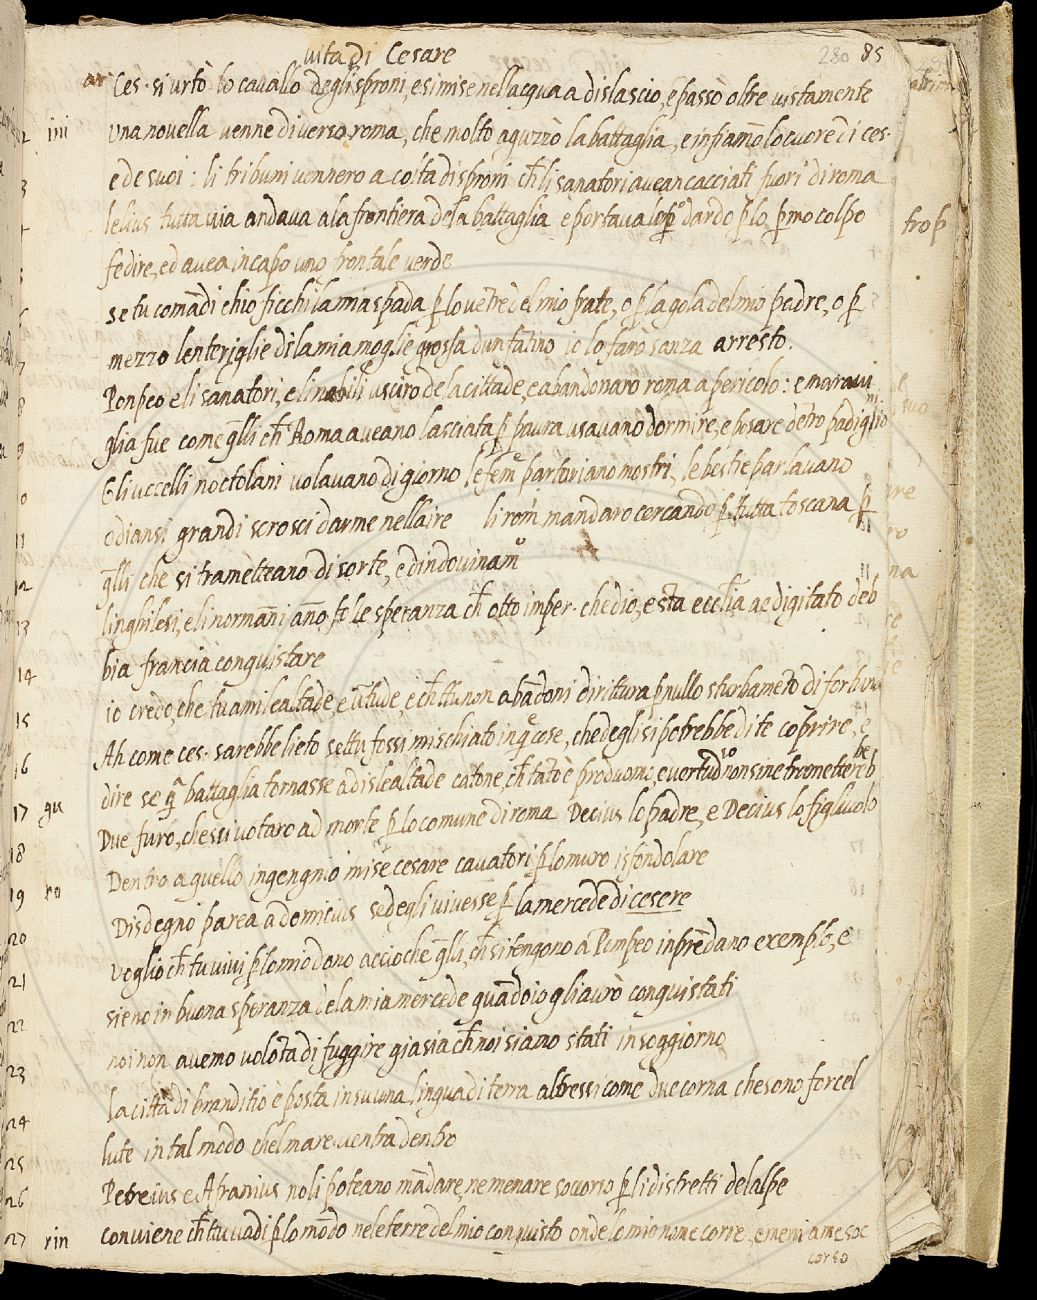 vita di Cesare
280 85
Ces. si urtò lo cavallo degli sproni, e si mise nell acqua a dislascio, e passò oltre vistamente
una novella venne di verso roma, che molto aguzzò la battaglia, e infiamò lo cuore di ces.
e de suoi : li tribuni vennero a coíta di sproni ch̃ li sanatori avean cacciati fuori di roma
lelius tutta via andava a la frontiera de la battaglia e portava dardo p̱ lo p̱mo colpo
fedire, ed avea in capo uno frontale verde
se tu comādi chio ficchi la mia spada p̱ lo vētre del mio frate, o p̱ la gola del mio padre, o p̱
mezzo lenteriglie di la mia moglie grossa dun fatino io lo faro sanza arresto.
Ponpeo e li sanatori, e li nobili usciro de la cittade, e abandonaro roma a pericolo : e maravi
glia fue come q̄lli ch̃ Roma aveano lasciata p̱ paura usavano dormire, e posare dētro padiglio
ni
Gli uccelli noctolani volavano di giorno le fem̃e partoriano mostri, le bestie parlavano
odiansi grandi scrosci darme nellaire li rom̃ mandaro cercando p̱ tutta toscana p̱
q̄lli che si tramètteano di sorte, e dindovinam̊
linghilesi, e li normāni āno le speranza ch̃ otto imper. che dio, e sta ecc̃lia ae digitato deb
bia francia conquistare
io credo, che tu ami lealtade, e v̄tude, e ch̃ ttu non abādoni diritura p̱ nullo sturbamēto di fortuna
Ah come ces. sarebbe lieto settu fossi mischiato in q̄ cose, che degli si potrebbe di te cop̱rire, e
dire se q̄ battaglia tornasse a dislealtade catone, ch̃ tāto è produomo, e vertud non sine trametterebb
be
Due furo, che ssi votaro ad morte p̱ lo comune di roma Decius lo padre, e Decius lo figliuolo
Dentro a quello ingengnio mise cesare cavatori p̱ lo muro isfondolare
Disdegno parea a domitius sed egli vivesse p̱ la mercede di cesere
Voglio ch̃ tu vivi p̱ lo mio dono accio che q̄lli, ch̃ si tengono a Pompeo inprēdano exemplo, e
sieno in buona speranza de la mia mercede quādo io gli avrò conquistati
noi non avemo volōta di fuggire gia sia ch̃ noi siamo stati in soggiorno
la città di branditio è posta in su una lingua di terra altressi come due corna che sono forcel
lute in tal modo chel mare ventra dentro
Petreius e Afranius no li poteano mādare, ne menare socorso p̱ li distretti delalpe
conviene ch̃ ttu vadi p̱ lo mōdo ne le terre del mio conquisto onde lo mio nome corre, e meni a me soc
corso